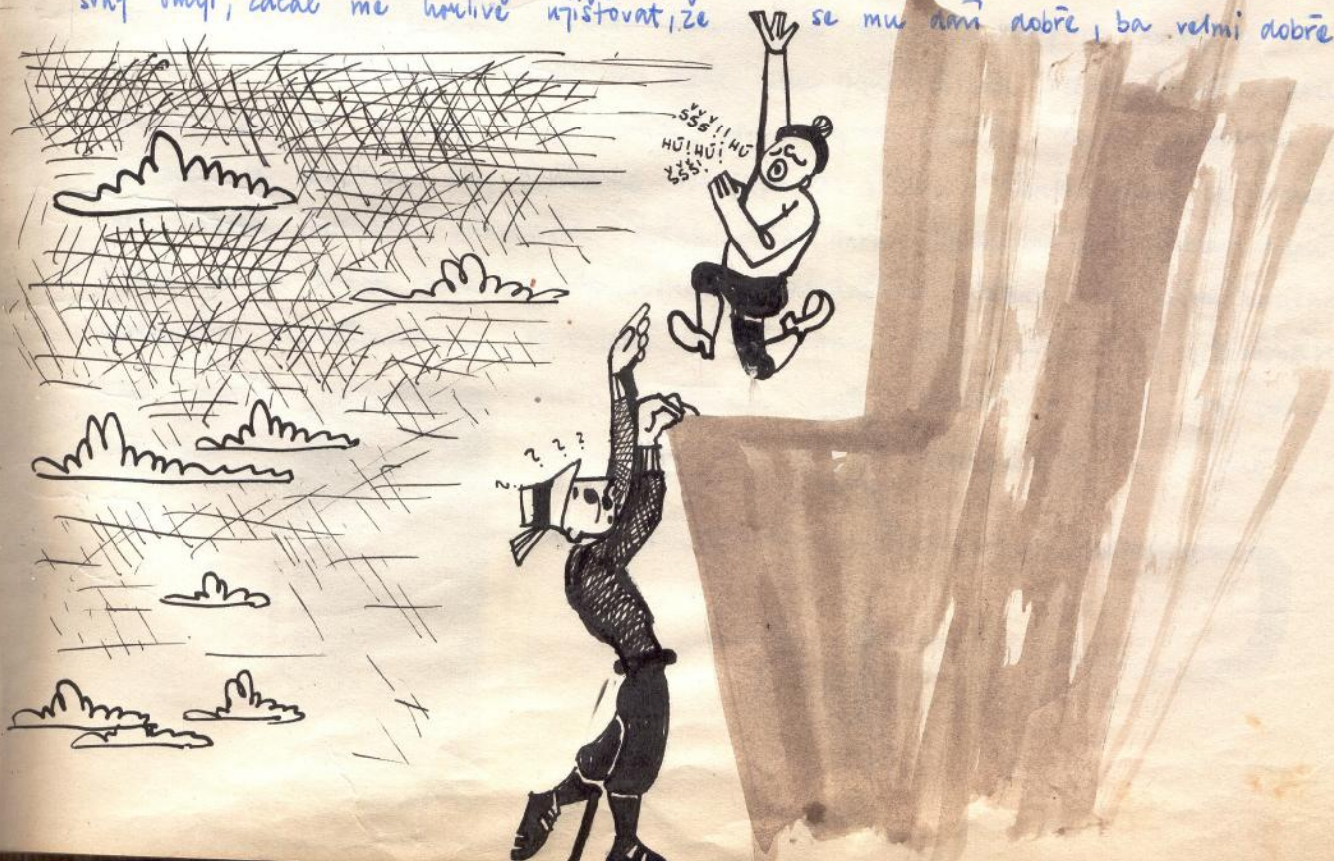 svůj omyl, začal mě horlivě ujišťovat, že se mu daří dobře, ba velmi dobře
ŠŠŠ!!
HŮ!HŮ! HŮ
ŠŠŠ!
? ? ?
?